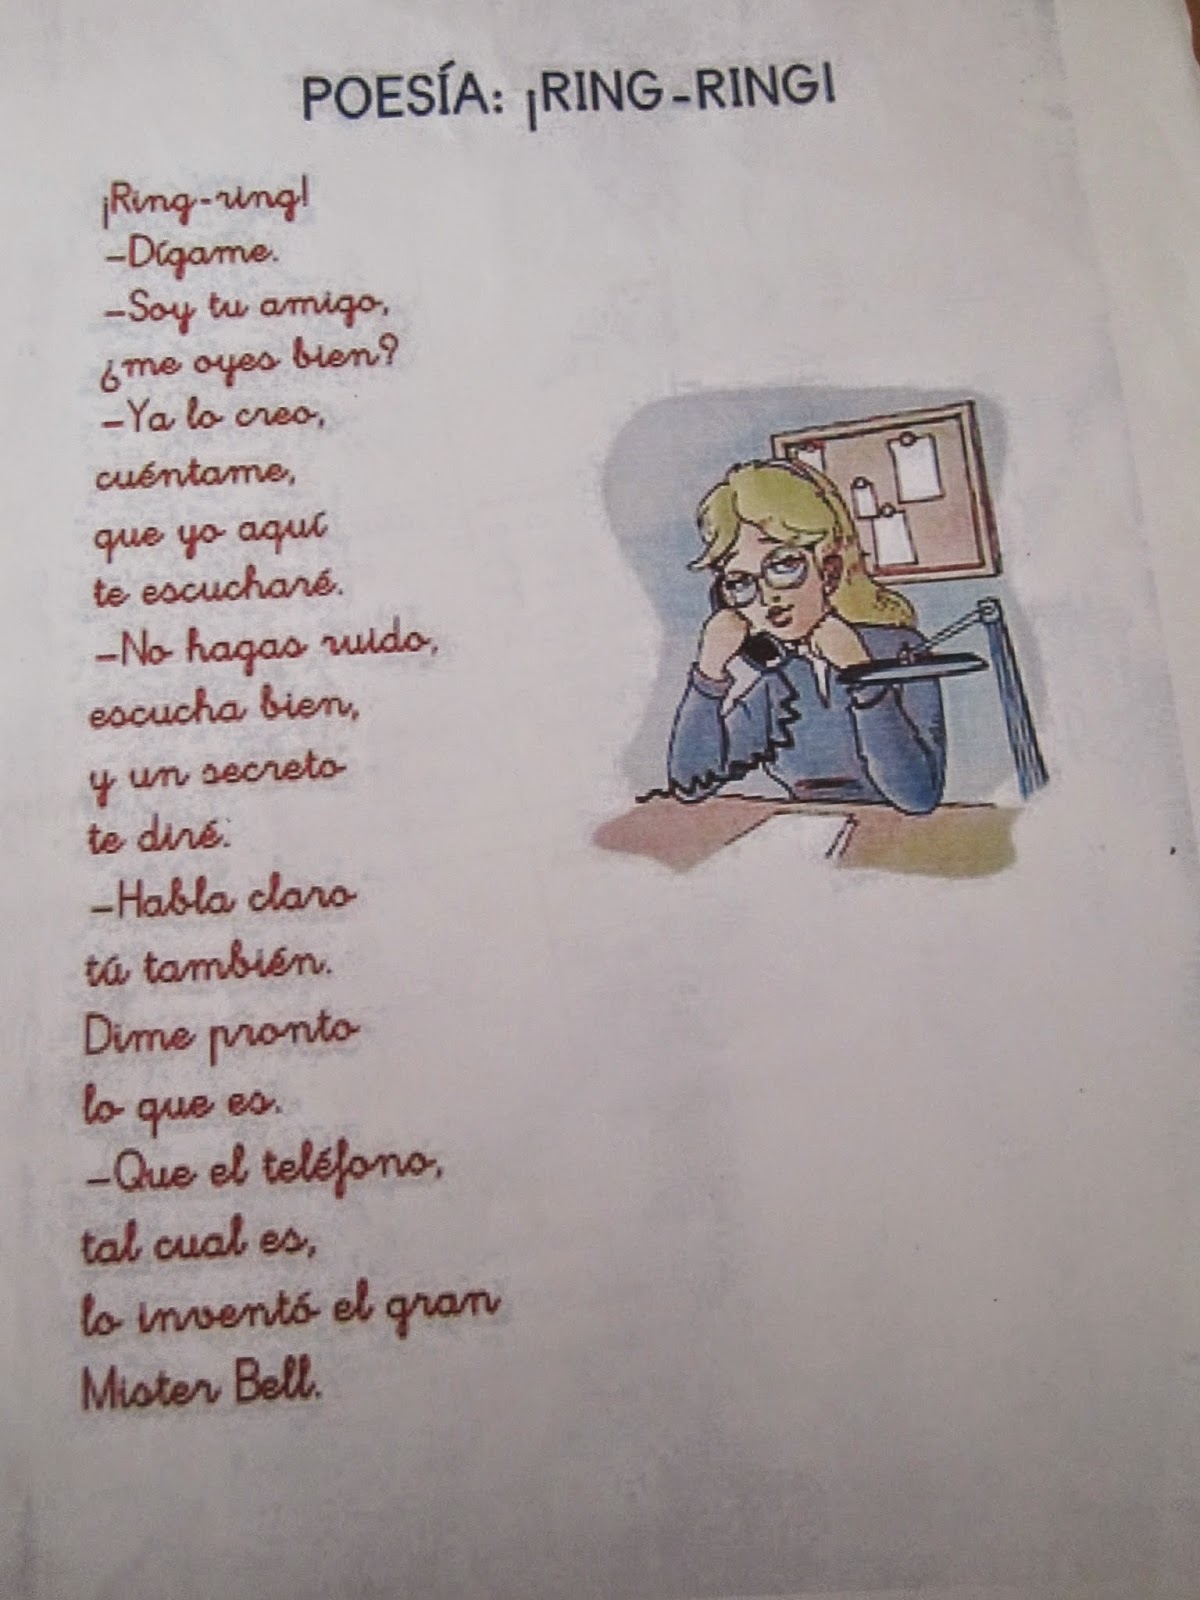 POESÍA: ¡RING-RING!
¡Ring-ring!
-Dígame.
-Soy tu amigo,
¿me oyes bien?
-Ya lo creo,
cuéntame,
que yo aquí
te escucharé.
-No hagas ruido,
escucha bien,
y un secreto
te diré:
-Habla claro
tú también.
Dime pronto
lo que es.
-Que el teléfono,
tal cual es,
lo inventó el gran
Mister Bell.